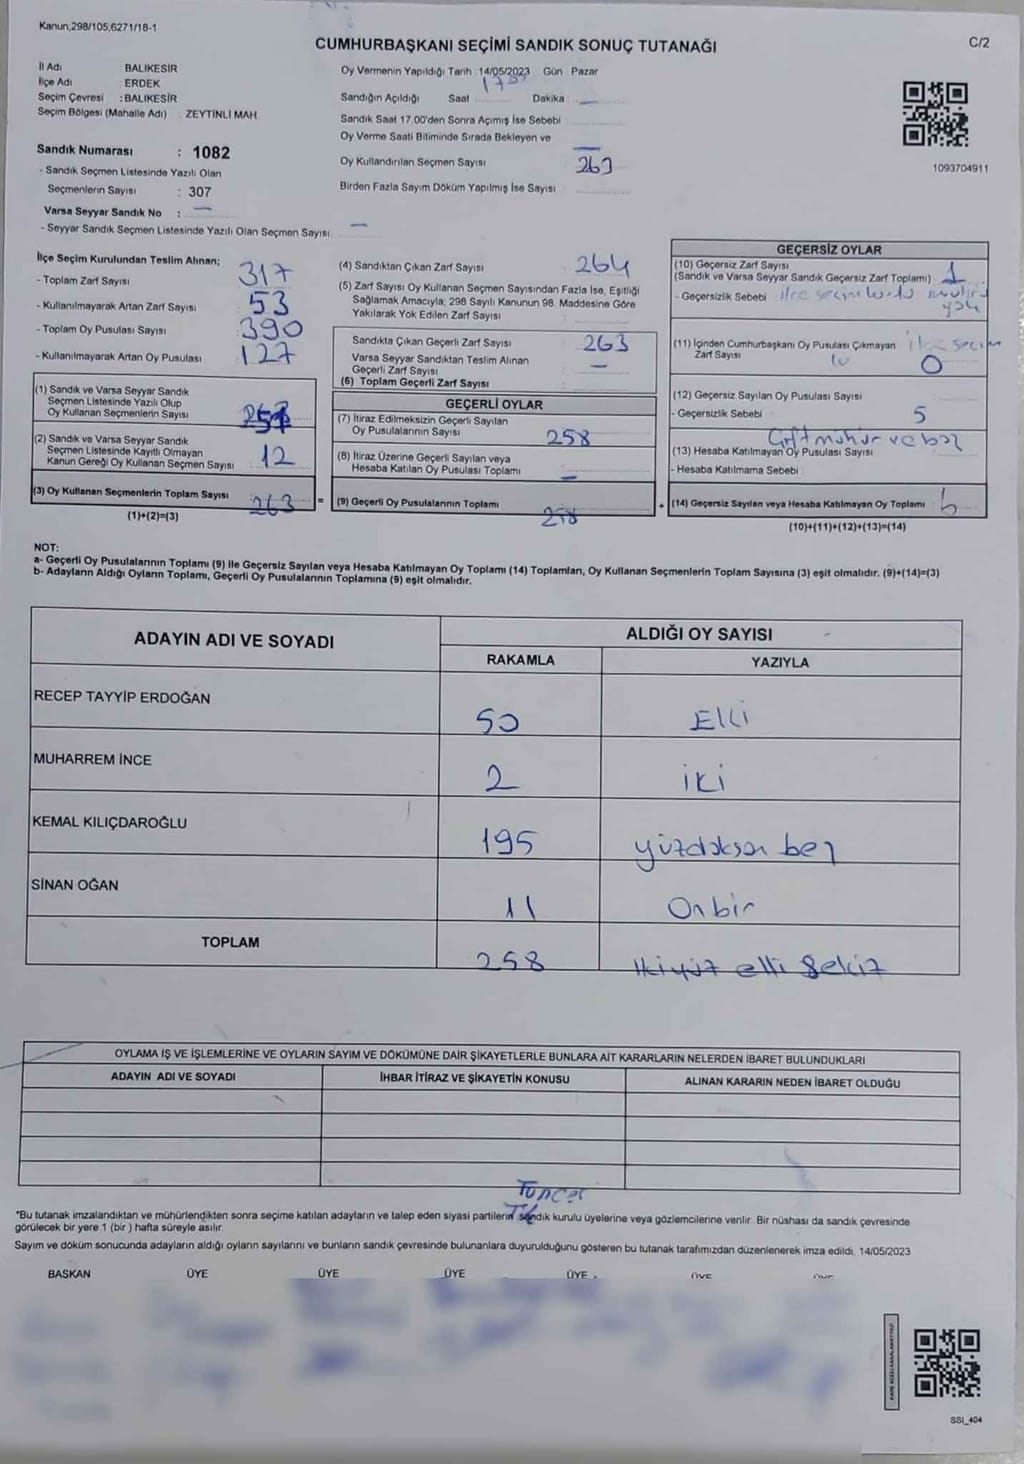 Kanun;298/105;6271/18-1
C/2
CUMHURBAŞKANI SEÇİMİ SANDIK SONUÇ TUTANAĞI
İl Adı BALIKESİR
İlçe Adı : ERDEK
Seçim Çevresi : BALIKESİR
Seçim Bölgesi (Mahalle Adı) ZEYTİNLİ MAH.
Sandık Numarası : 1082
- Sandık Seçmen Listesinde Yazılı Olan
Seçmenlerin Sayısı : 307
Varsa Seyyar Sandık No : —
- Seyyar Sandık Seçmen Listesinde Yazılı Olan Seçmen Sayısı: —
Oy Vermenin Yapıldığı Tarih : 14/05/2023 Gün : Pazar
Sandığın Açıldığı Saat Dakika : —
Sandık Saat 17.00'den Sonra Açımış İse Sebebi
Oy Verme Saati Bitiminde Sırada Bekleyen ve
Oy Kullandırılan Seçmen Sayısı —
263
Birden Fazla Sayım Döküm Yapılmış İse Sayısı
1093704911
İlçe Seçim Kurulundan Teslim Alınan;
- Toplam Zarf Sayısı 317
- Kullanılmayarak Artan Zarf Sayısı 53
- Toplam Oy Pusulası Sayısı 390
- Kullanılmayarak Artan Oy Pusulası 127
(1) Sandık ve Varsa Seyyar Sandık
Seçmen Listesinde Yazılı Olup
Oy Kullanan Seçmenlerin Sayısı
(2) Sandık ve Varsa Seyyar Sandık
Seçmen Listesinde Kayıtlı Olmayan
Kanun Gereği Oy Kullanan Seçmen Sayısı 12
(3) Oy Kullanan Seçmenlerin Toplam Sayısı 263 =
(1)+(2)=(3)
(4) Sandıktan Çıkan Zarf Sayısı 264
(5) Zarf Sayısı Oy Kullanan Seçmen Sayısından Fazla İse, Eşitliği
Sağlamak Amacıyla; 298 Sayılı Kanunun 98. Maddesine Göre
Yakılarak Yok Edilen Zarf Sayısı
Sandıkta Çıkan Geçerli Zarf Sayısı 263
Varsa Seyyar Sandıktan Teslim Alınan
Geçerli Zarf Sayısı —
(6) Toplam Geçerli Zarf Sayısı
GEÇERLİ OYLAR
(7) İtiraz Edilmeksizin Geçerli Sayılan
Oy Pusulalarının Sayısı 258
(8) İtiraz Üzerine Geçerli Sayılan veya
Hesaba Katılan Oy Pusulası Toplamı —
(9) Geçerli Oy Pusulalarının Toplamı 258 +
GEÇERSİZ OYLAR
(10) Geçersiz Zarf Sayısı
(Sandık ve Varsa Seyyar Sandık Geçersiz Zarf Toplamı) 1
- Geçersizlik Sebebi ilçe seçim kurulu mührü
yok
(11) İçinden Cumhurbaşkanı Oy Pusulası Çıkmayan ilçe seçim
Zarf Sayısı 0
(12) Geçersiz Sayılan Oy Pusulası Sayısı
- Geçersizlik Sebebi 5
Çift mühür ve boş
(13) Hesaba Katılmayan Oy Pusulası Sayısı
- Hesaba Katılmama Sebebi
(14) Geçersiz Sayılan veya Hesaba Katılmayan Oy Toplamı 6
(10)+(11)+(12)+(13)=(14)
NOT:
a- Geçerli Oy Pusulalarının Toplamı (9) ile Geçersiz Sayılan veya Hesaba Katılmayan Oy Toplamı (14) Toplamları, Oy Kullanan Seçmenlerin Toplam Sayısına (3) eşit olmalıdır. (9)+(14)=(3)
b- Adayların Aldığı Oyların Toplamı, Geçerli Oy Pusulalarının Toplamına (9) eşit olmalıdır.
ADAYIN ADI VE SOYADI ALDIĞI OY SAYISI
RAKAMLA YAZIYLA
RECEP TAYYİP ERDOĞAN 50 Elli
MUHARREM İNCE 2 iki
KEMAL KILIÇDAROĞLU 195 yüzdoksan beş
SİNAN OĞAN 11 Onbir
TOPLAM 258 ikiyüz elli Sekiz
OYLAMA İŞ VE İŞLEMLERİNE VE OYLARIN SAYIM VE DÖKÜMÜNE DAİR ŞİKAYETLERLE BUNLARA AİT KARARLARIN NELERDEN İBARET BULUNDUKLARI
ADAYIN ADI VE SOYADI İHBAR İTİRAZ VE ŞİKAYETİN KONUSU ALINAN KARARIN NEDEN İBARET OLDUĞU
*Bu tutanak imzalandıktan ve mühürlendikten sonra seçime katılan adayların ve talep eden siyasi partilerin sandık kurulu üyelerine veya gözlemcilerine verilir. Bir nüshası da sandık çevresinde
görülecek bir yere 1 (bir ) hafta süreyle asılır.
Sayım ve döküm sonucunda adayların aldığı oyların sayılarını ve bunların sandık çevresinde bulunanlara duyurulduğunu gösteren bu tutanak tarafımızdan düzenlenerek imza edildi. 14/05/2023
BAŞKAN ÜYE ÜYE ÜYE ÜYE ÜYE ÜYE
SSI_404